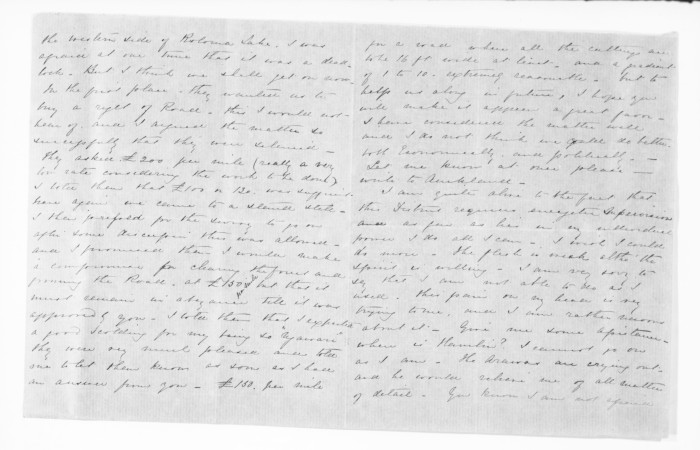 the western side of Rotoma Lake. I was
afraid at one time that it was a dead
lock. But I think we shall get on now.
In the first place they wanted us to
buy a right of Road. this I would not
hear of. and I argued the matter so
successfully that they were silenced -
They asked £200 per mile (really a very
low rate considering the work to be done)
I told them that £100 or 120. was sufficient
here again we came to a stand still -
I then prepared for the survey to go on
after some discussion this was allowed -
and I promised them I would make
a compromise for clearing the forest and
forming the Road. at £150 but that it
must remain in abeyance till it was
approved by you - I told them that I expected
a good scolding for my being so
they were very much pleased and told
me to let them know as soon as I had
an answer from you - £150. per mile
for a road where all the cuttings are
to be 16 ft wide at least. and a gradient
of 1 to 10. extremely reasonable - but to
help us along in future, I hope you
will make it appear a great favor -
I have considered the matter well
and I do not think we could do better,
both Economically and politically. -
Let me know at once please -
write to Auckland -
I am quite alive to the fact that
this District requires energetic Supervision
and as far as lies in my individual
power I do all I can - I wish I could
do more - The flesh is weak altho' the
spirit is willing - I am very sorry to
say that I am not able to do as I
used. this pain in my head is very
trying to me. and I am rather nervous
about it - Give me some assistance -
where is Hamlin? I cannot go on
as I am - the Arawas are crying out -
and he would relieve me of all matters
of detail - You know I am not